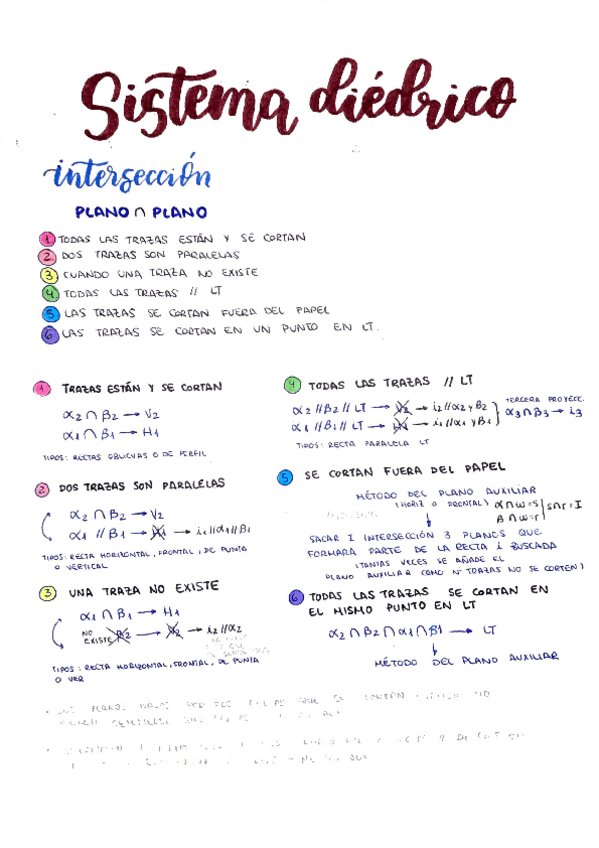 Sistema diédrico
intersección
PLANO ∩ PLANO
1 TODAS LAS TRAZAS ESTÁN Y SE CORTAN
2. DOS TRAZAS SON PARALELAS
3. CUANDO UNA TRAZA NO EXISTE
4. TODAS LAS TRAZAS // LT
5. LAS TRAZAS SE CORTAN FUERA DEL PAPEL
6 LAS TRAZAS SE CORTAN EN UN PUNTO EN LT.
1 TRAZAS ESTÁN Y SE CORTAN
α2 ∩ β2 → V2
α1 ∩ β1 → H1
TIPOS: RECTAS OBLICUAS O DE PERFIL
2 DOS TRAZAS SON PARALELAS
α2 ∩ β2 → V2
α1 // β1 → H1 → i1//α1//β1
TIPOS: RECTA HORIZONTAL, FRONTAL, DE PUNTA
O VERTICAL
3 UNA TRAZA NO EXISTE
α1 ∩ β1 → H1
NO EXISTE β2 → V2 → i2//α2
TIPOS: RECTA HORIZONTAL, FRONTAL, DE PUNTA
O VER
4 TODAS LAS TRAZAS // LT
α2 // β2 // LT → V2 → i2//α2 y β2
α1 // β1 // LT → H1 → i1//α1 y β1
TERCERA PROYECC.
α3 ∩ β3 → i3
TIPOS: RECTA PARALELA LT
5 SE CORTAN FUERA DEL PAPEL
MÉTODO DEL PLANO AUXILIAR
(HORIZ O FRONTAL) α∩ω=s
β∩ω=r
s∩r=I
SACAR I INTERSECCIÓN 3 PLANOS QUE
FORMARÁ PARTE DE LA RECTA i BUSCADA
(TANTAS VECES SE AÑADE EL
PLANO AUXILIAR COMO Nº TRAZAS NO SE CORTEN)
6 TODAS LAS TRAZAS SE CORTAN EN
EL MISMO PUNTO EN LT
α2 ∩ β2 ∩ α1 ∩ β1 → LT
MÉTODO DEL PLANO AUXILIAR